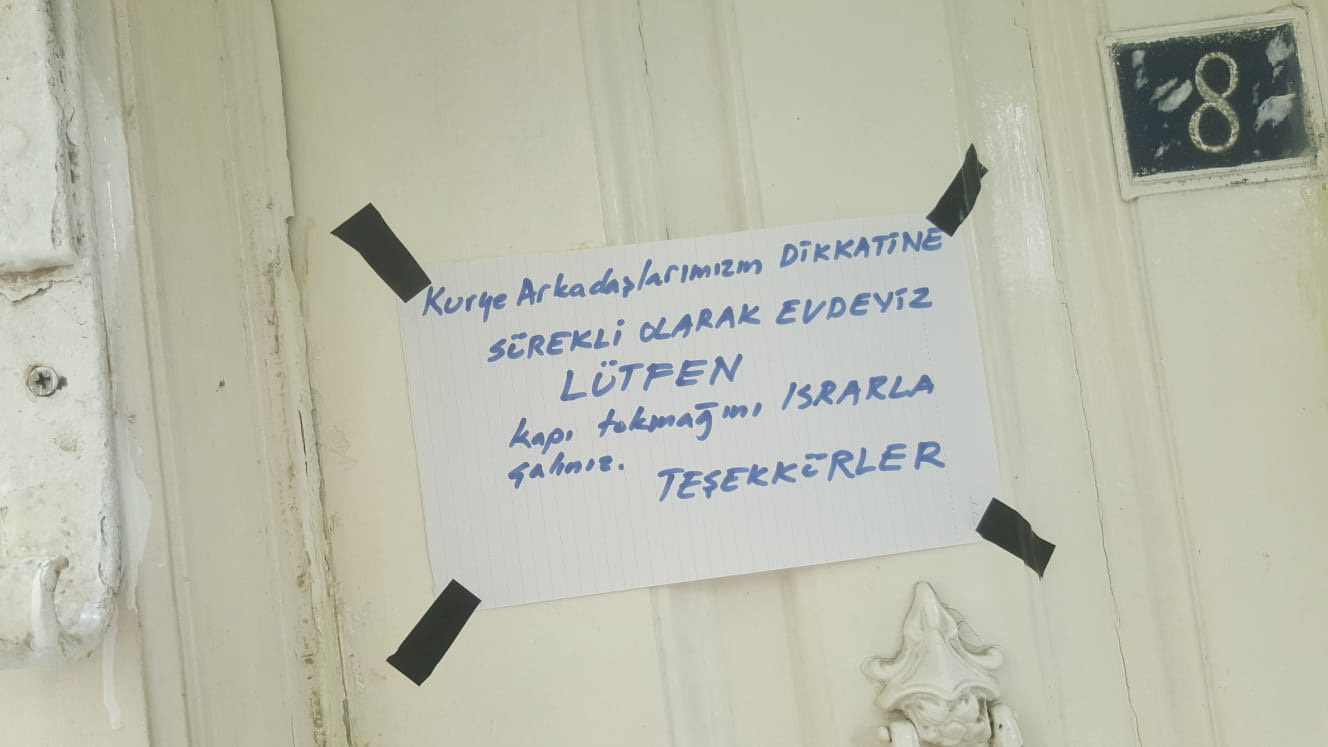 8
Kurye Arkadaşlarımızın DİKKATİNE
SÜREKLİ OLARAK EVDEYİZ
LÜTFEN
kapı tokmağını ISRARLA
çalınız.
TEŞEKKÜRLER